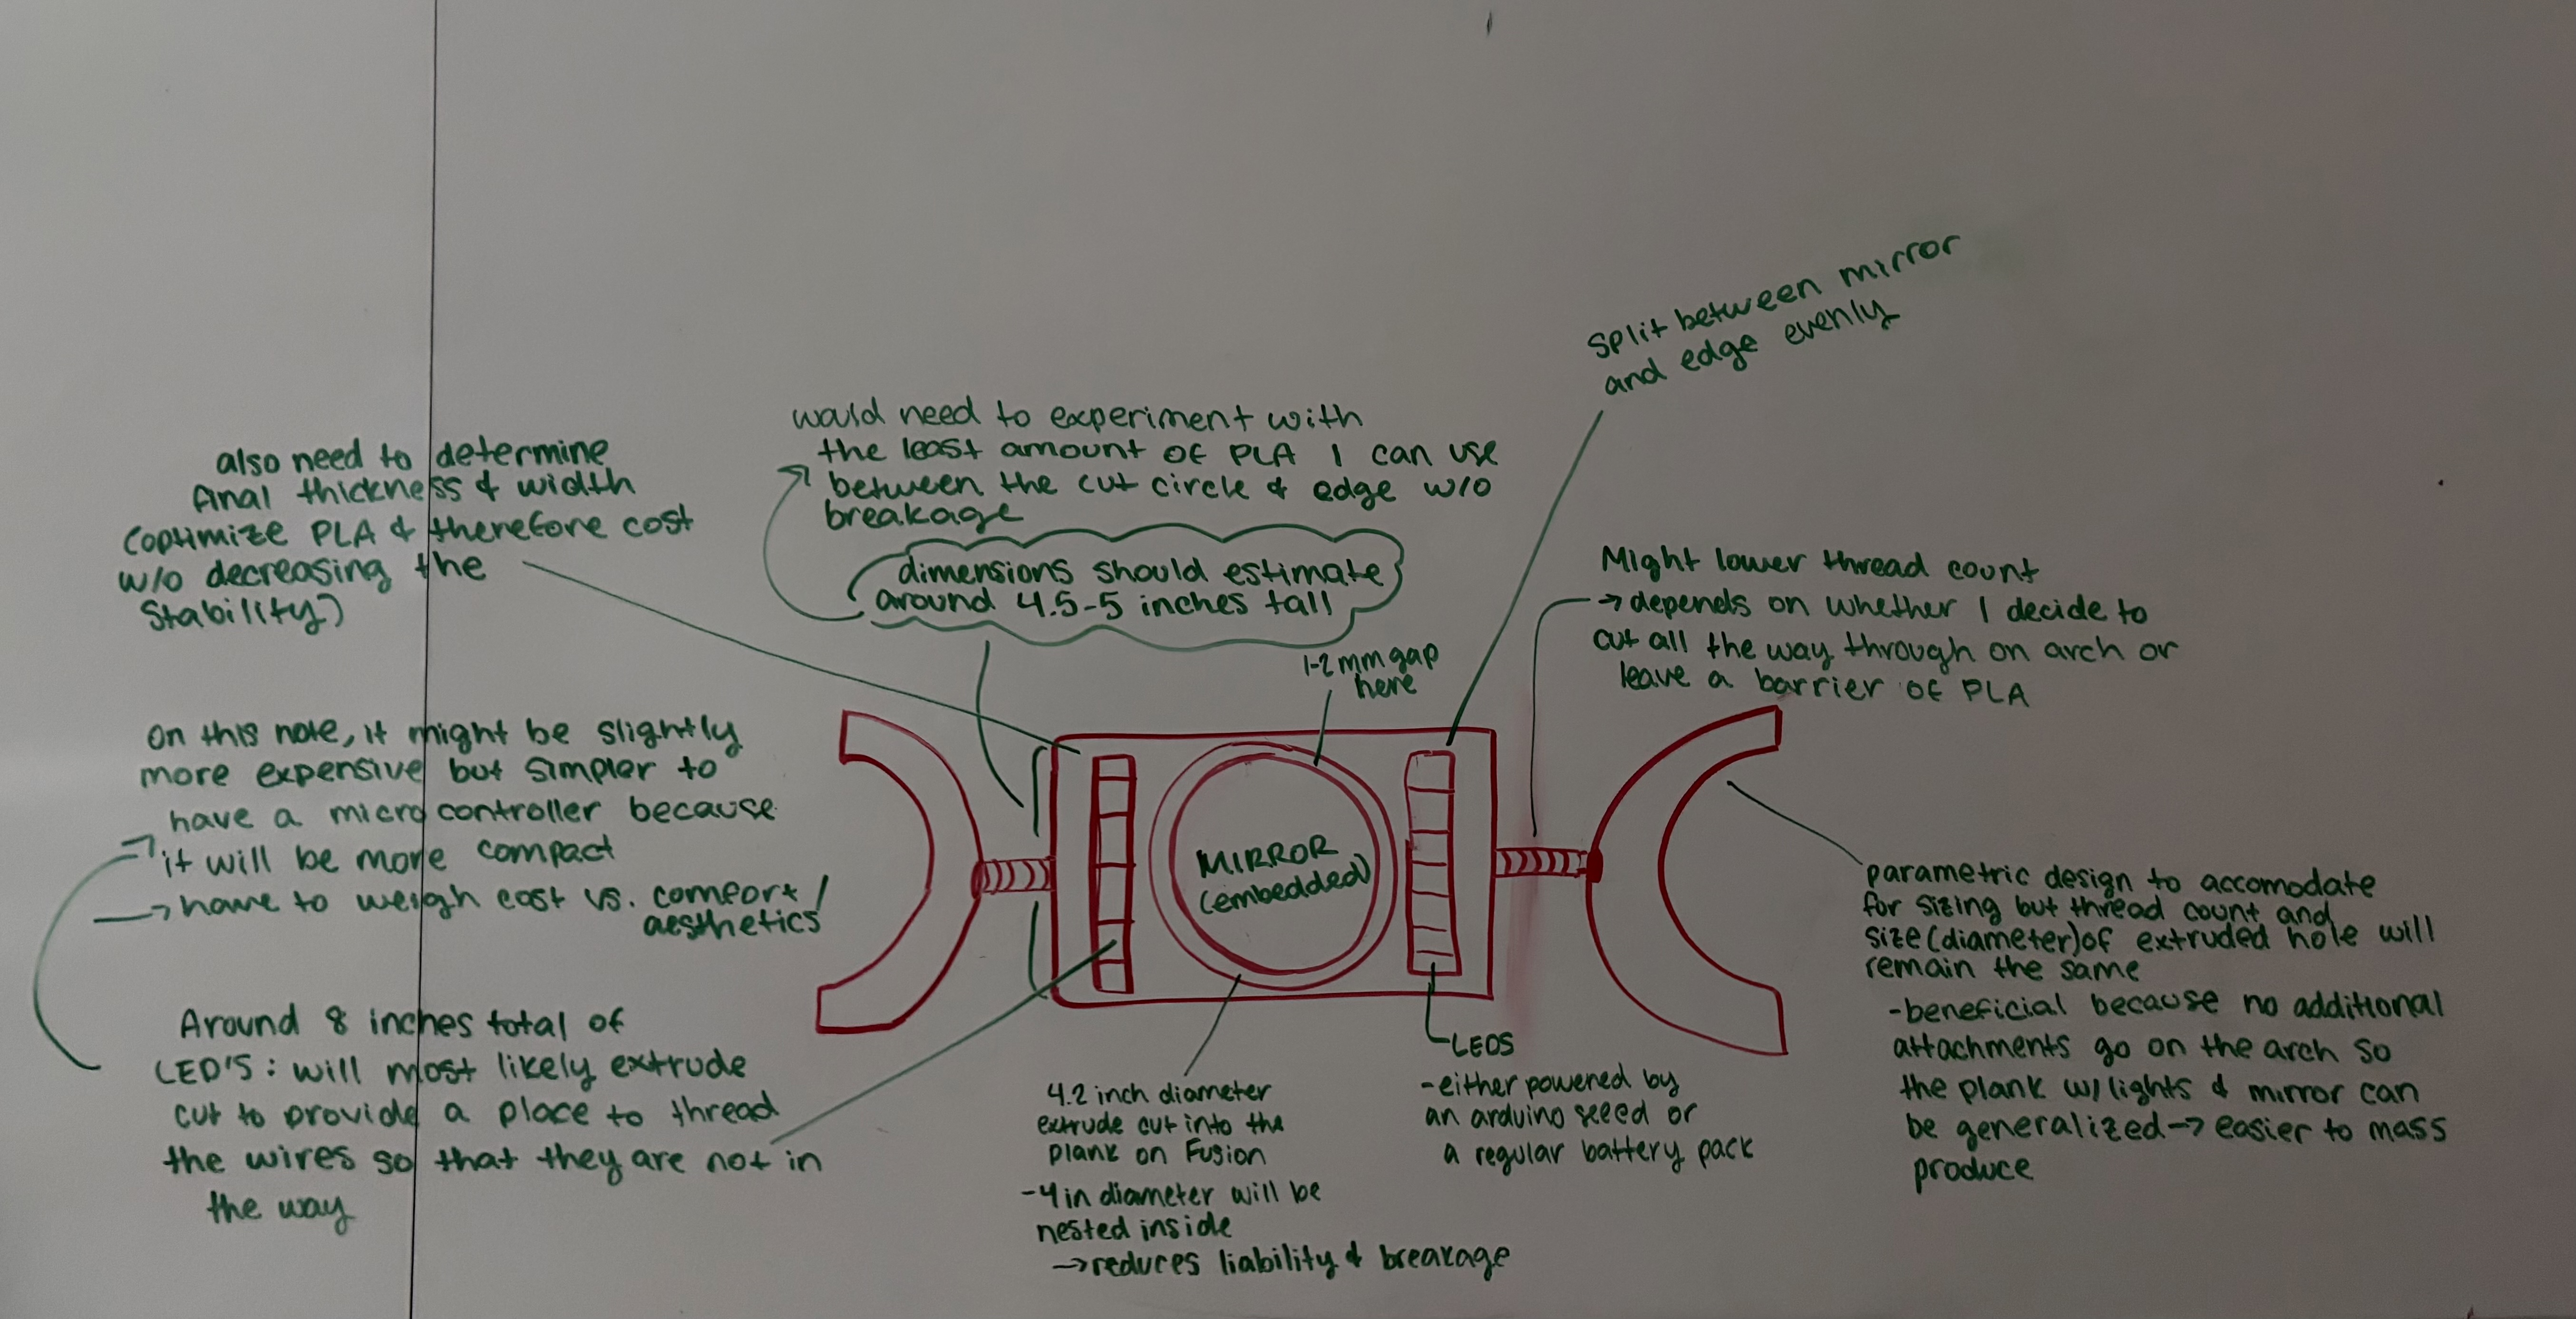 split between mirror
and edge evenly
would need to experiment with
the least amount of PLA I can use
between the cut circle & edge w/o
breakage
dimensions should estimate
around 4.5-5 inches tall
also need to determine
final thickness & width
(optimize PLA & therefore cost
w/o decreasing the
stability)
Might lower thread count
→ depends on whether I decide to
cut all the way through on arch or
leave a barrier of PLA
1-2 mm gap
here
on this note, it might be slightly
more expensive but simpler to
have a microcontroller because
it will be more compact
→ have to weigh cost vs. comfort/
aesthetics
MIRROR
(embedded)
parametric design to accomodate
for sizing but thread count and
size(diameter)of extruded hole will
remain the same
-beneficial because no additional
attachments go on the arch so
the plank w/lights & mirror can
be generalized→ easier to mass
produce
Around 8 inches total of
LED'S: will most likely extrude
cut to provide a place to thread
the wires so that they are not in
the way
4.2 inch diameter
extrude cut into the
plank on Fusion
-4in diameter will be
nested inside
→reduces liability & breakage
LEDS
-either powered by
an arduino seeed or
a regular battery pack